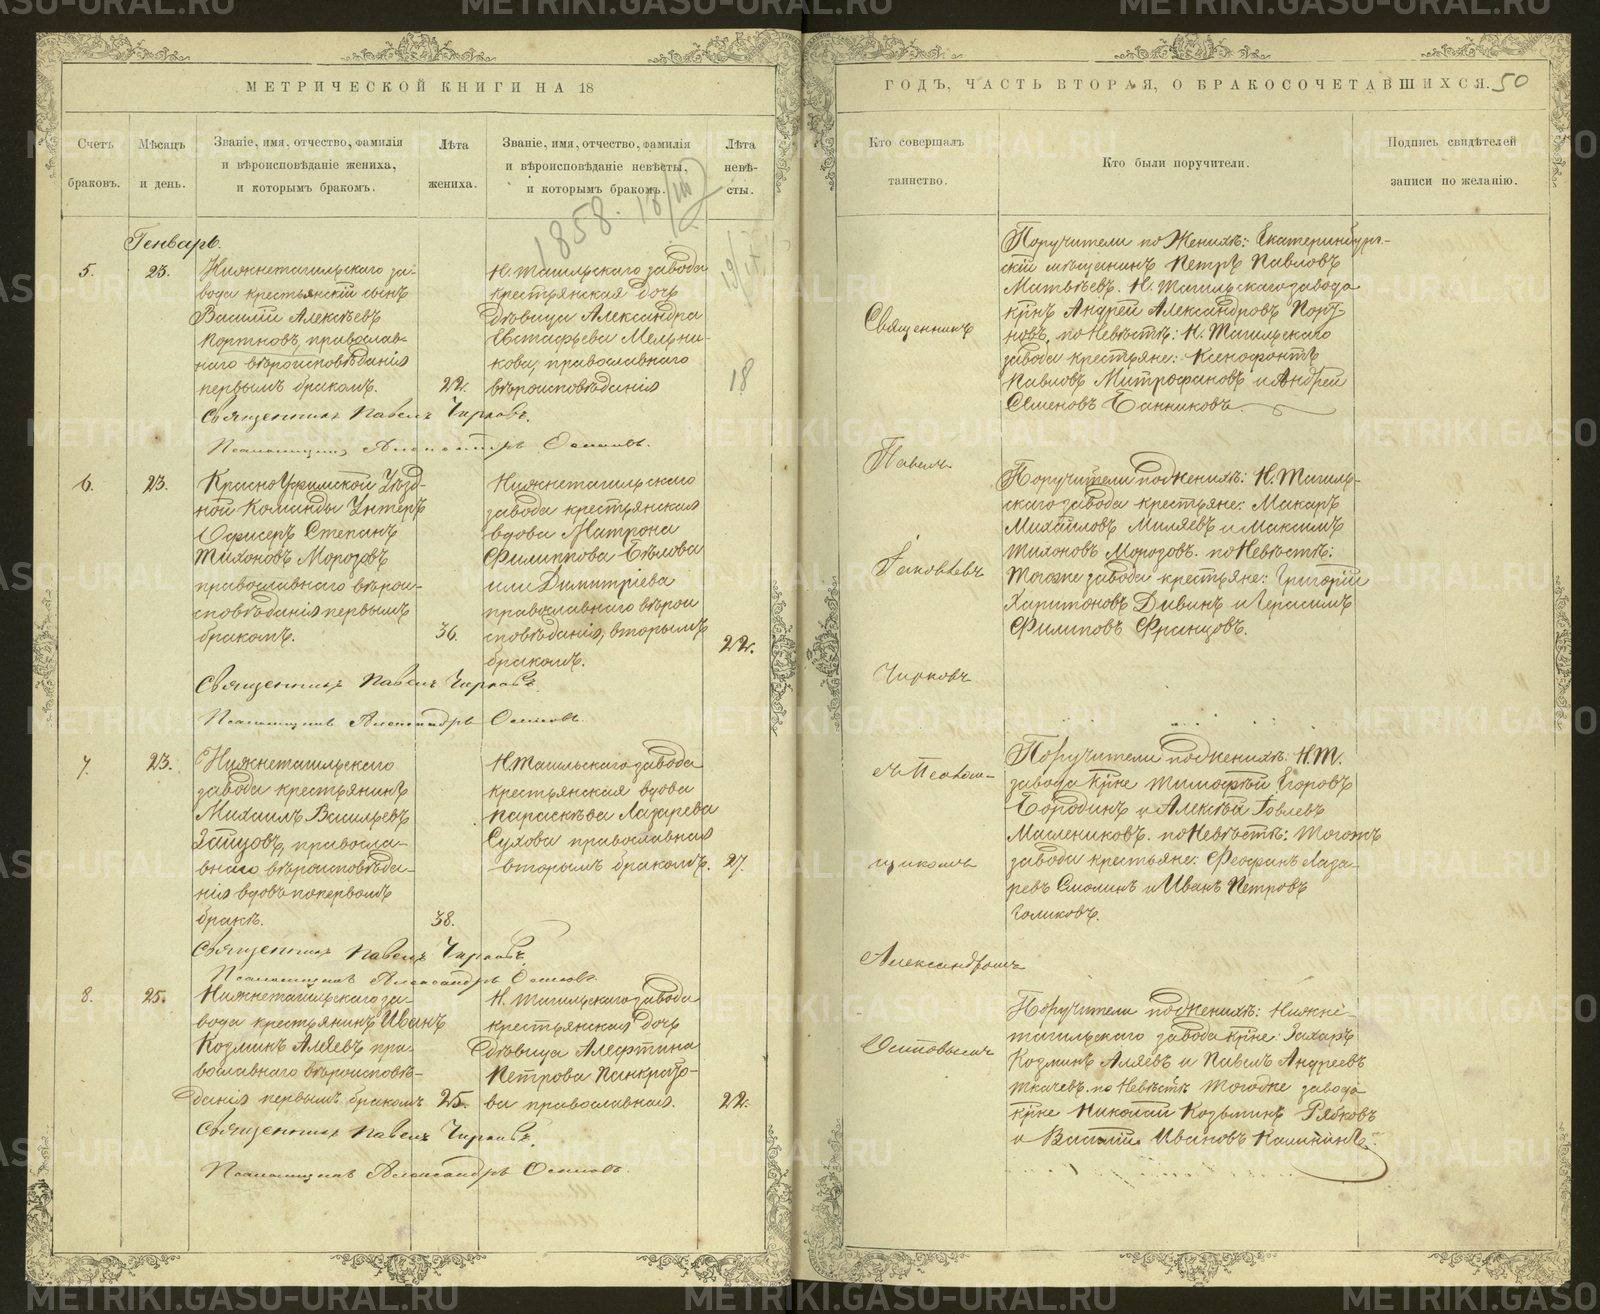 МЕТРИЧЕСКОЙ КНИГИ НА 18
Счетъ браковъ.
Мѣсяцъ и день.
Званіе, имя, отчество, фамилія
и вѣроисповѣданіе жениха,
и которымъ бракомъ.
Лѣта жениха.
Званіе, имя, отчество, фамилія
и вѣроисповѣданіе невѣсты,
и которымъ бракомъ.
Лѣта невѣ-
сты.
1858.
Генварь.
5.
23.
Нижнетагильскаго за-
вода крестьянскій сынъ
Василій Алексѣевъ
Портновъ, православ-
наго вѣроисповѣданія
первымъ бракомъ.
22.
Н. Тагильскаго завода
крестьянская дочь
дѣвица Александра
Евстафьева Мельни-
кова, православнаго
вѣроисповѣданія
18
Священникъ Павелъ Чирковъ.
Псаломщикъ Александръ Осиповъ.
6.
23.
Красноуфимской Уѣзд-
ной Команды Унтеръ
Офисеръ Степанъ
Тихоновъ Морозовъ
православнаго вѣрои-
сповѣданія первымъ
бракомъ.
36.
Нижнетагильскаго
завода крестьянская
вдова Матрона
Филиппова Бѣлова
или Димитріева
православнаго вѣрои
сповѣданія, вторымъ
бракомъ.
22.
Священникъ Павелъ Чирковъ.
Псаломщикъ Александръ Осиповъ.
7.
23.
Нижнетагильскаго
завода крестьянинъ
Михаилъ Васильевъ
Зайцовъ, правосла-
внаго вѣроисповѣда-
нія вдовъ по первомъ
бракѣ.
38.
Н. Тагильскаго завода
крестьянская вдова
Параскѣва Лазарева
Сухова православная
вторымъ бракомъ.
27.
Священникъ Павелъ Чирковъ.
Псаломщикъ Александръ Осиповъ.
8.
25.
Нижнетагильскаго за-
вода крестьянинъ Иванъ
Козминъ Аляевъ пра-
вославнаго вѣроисповѣ-
данія первымъ бракомъ
25.
Н. Тагильскаго завода
крестьянская дочь
дѣвица Алефтина
Петрова Панкрато-
ва православная.
22.
Священникъ Павелъ Чирковъ.
Псаломщикъ Александръ Осиповъ.
ГОДЪ, ЧАСТЬ ВТОРАЯ, О БРАКОСОЧЕТАВШИХСЯ.
50
Кто совершалъ
таинство.
Кто были поручители.
Подпись свидѣтелей
записи по желанію.
Священникъ
Павелъ
Іаковлевъ
Чирковъ
съ Псалом-
щикомъ
Александромъ
Осиповымъ
Поручители по Женихѣ: Екатеринбург-
скій мѣщанинъ Петръ Павловъ
Матвѣевъ. Н. Тагильскаго завода
кр̃нъ Андрей Александровъ Порт-
новъ, по Невѣстѣ: Н. Тагильскаго
завода крестьяне: Ксенофонтъ
Павловъ Митрофановъ и Андрей
Семеновъ Банниковъ.
Поручители по женихѣ: Н. Тагиль-
скаго завода крестьяне: Макаръ
Михайловъ Миляевъ и Максимъ
Тихоновъ Морозовъ. по Невѣстѣ:
Тогоже завода крестьяне: Григорій
Харитоновъ Дивинъ и Герасимъ
Филиповъ Францовъ.
Поручители по женихѣ: Н.Т.
завода кр̃не Тимофей Егоровъ
Бородинъ и Алексѣй Іовлевъ
Маслениковъ. по Невѣстѣ: Тогожъ
завода крестьяне: Феофанъ Лаза-
ревъ Смолинъ и Иванъ Петровъ
Голиковъ.
Поручители по женихѣ: Нижне-
тагильскаго завода кр̃не: Захаръ
Козминъ Аляевъ и Павелъ Андреевъ
Ткачевъ. по Невѣстѣ Тогоже завода
кр̃не Николай Козьминъ Рябковъ
и Василій Ивановъ Калининъ.
METRIKI.GASO-URAL.RU